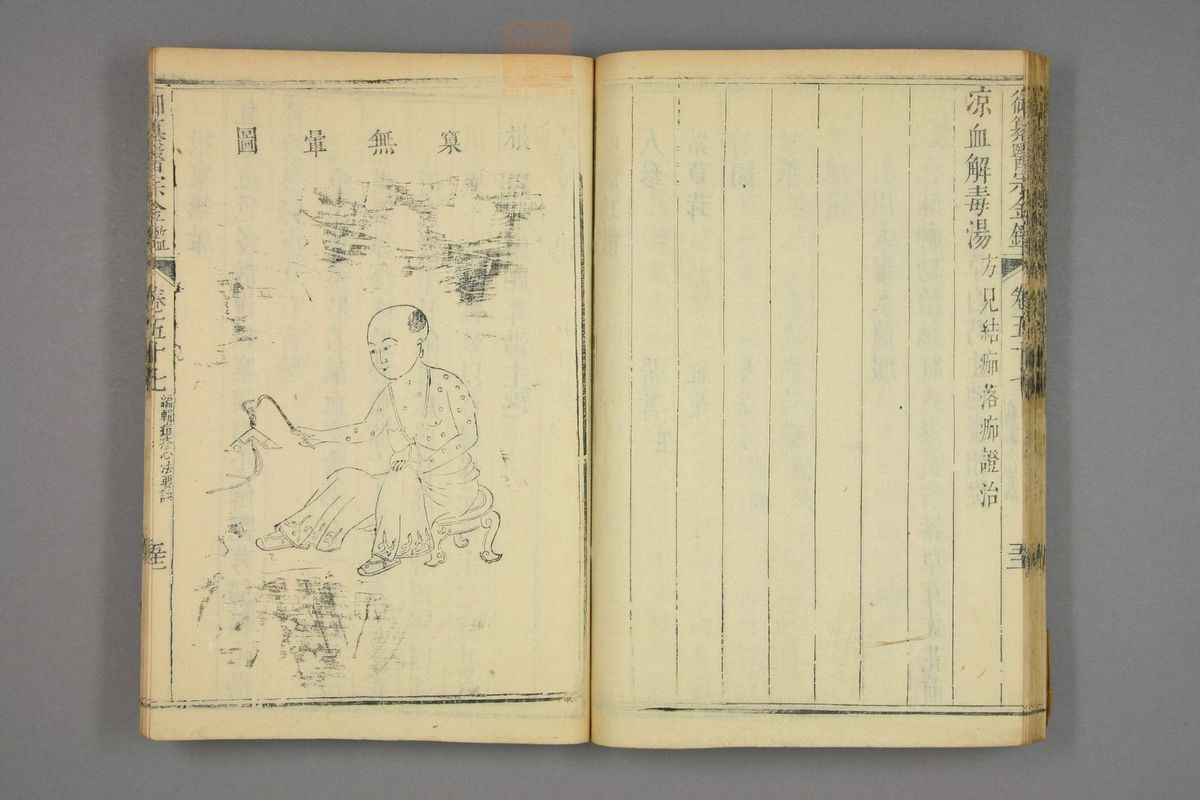 御纂醫宗金鑑 卷五十七
凉血解毒湯 方見結痂落痂證治
根窠無暈圖
御纂醫宗金鑑 卷之五十七 編輯痘疹心法要訣